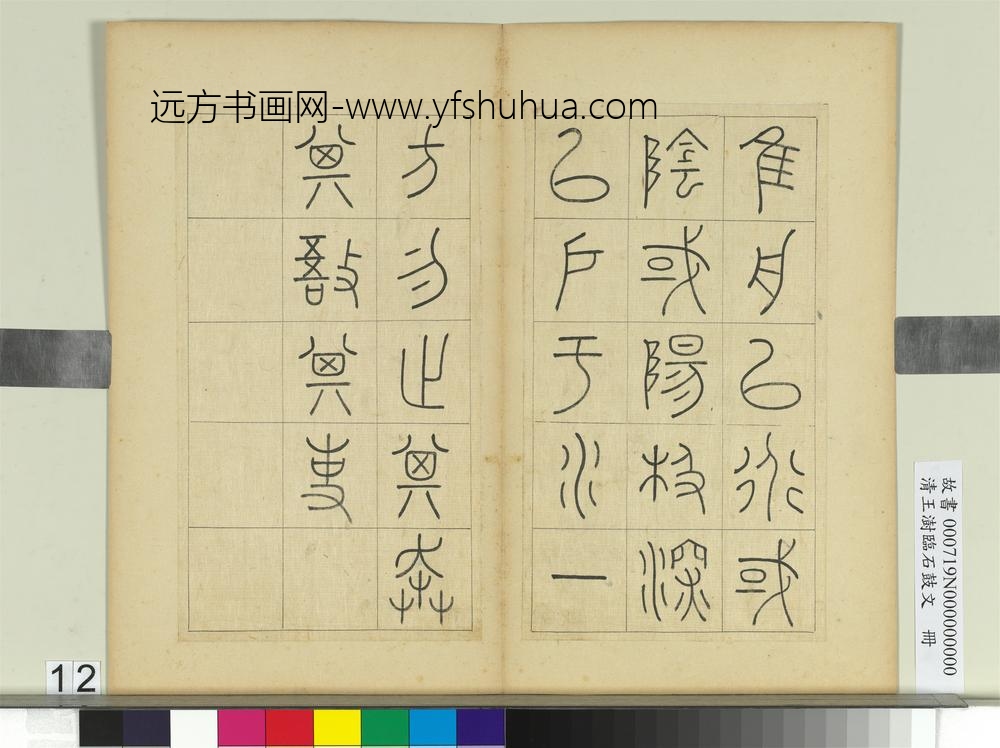 远方书画网-www.yfshuhua.com
隹舟以行或
陰或陽极深
以戶于水一
方勿止其奔
其敔其事
故書 000719N000000000
清王澍臨石鼓文 冊
12